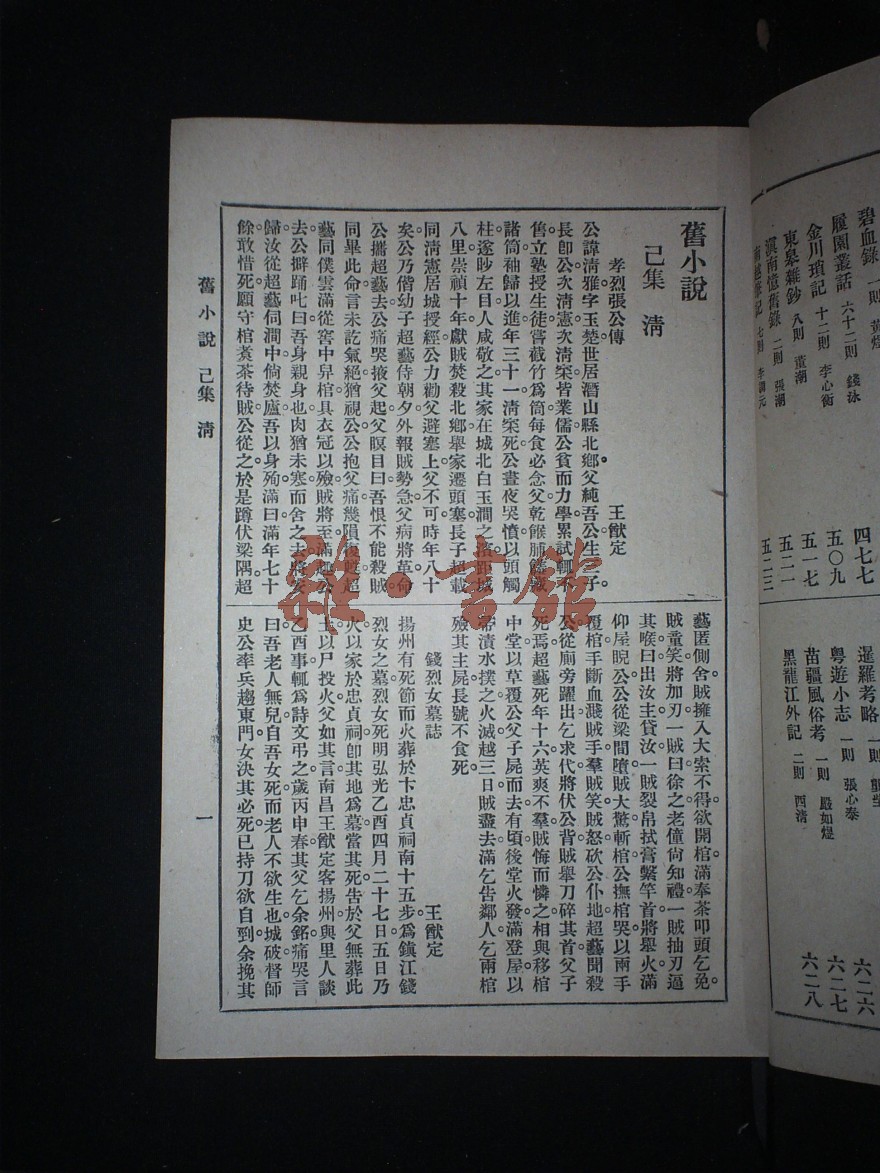 碧血錄 一則 黃煜
履園叢話 六十二則 錢泳 四七七
金川瑣記 十二則 李心衡 五〇九
東皋雜鈔 八則 董潮 五一七
滇南憶舊錄 二則 張潮 五二一
七則 五二三
暹羅考略 一則 六二六
粵遊小志 一則 張心泰 六二七
苗疆風俗考 一則 嚴如煜
黑龍江外記 二則 西清 六二八
舊小說
己集 清
孝烈張公傳 王猷定
公諱清雅字玉楚世居潛山縣北鄉父純吾公生三子
長卽公次清憲次清寀皆業儒公貧而力學累試輒不
售立塾授生徒嘗截竹爲筒每食必念父乾餱脯
諸筒秞歸以進年三十一清寀死公晝夜哭憤以頭觸
柱遂眇左目人咸敬之其家在城北白玉澗之 距城
八里崇禎十年獻賊焚殺北鄉舉家遷頭寨長子超載
同清憲居城授經公力勸父避塞上父不可時年八十
矣公乃偕幼子超藝侍朝夕外報賊勢急父病將革命
公攜超藝去公痛哭掖父起父瞑目曰吾恨不能殺賊
同畢此命言未訖氣絕猶視公公抱父痛幾隕復甦超
藝同僕雲滿從窖中舁棺具衣冠以殮賊將至滿趣公
去公擗踊叱曰吾身親身也肉猶未寒而舍之去將安
歸汝從超藝伺澗中倘焚廬吾以身殉滿曰滿年七十
餘敢惜死願守棺煑茶待賊公從之於是蹲伏梁隅超
藝匿側舍賊擁入大索不得欲開棺滿奉茶叩頭乞免
賊童笑將加刃一賊曰徐之老僮尙知禮一賊抽刃逼
其喉曰出汝主貸汝一賊裂帛拭膏繫竿首將舉火滿
仰屋睨公公從梁間墮賊大驚斬棺公撫棺哭以兩手
覆棺手斷血濺賊手羣賊笑賊怒砍公仆地超藝聞殺
公從廁旁躍出乞求代將伏公背賊舉刀碎其首父子
死焉超藝死年十六英爽不羣賊悔而憐之相與移棺
中堂以草覆公父子屍而去有頃後堂火發滿登屋以
帚漬水撲之火滅越三日賊盡去滿乞告鄰人乞兩棺
殮其主屍長號不食死
錢烈女墓誌 王猷定
揚州有死節而火葬於卞忠貞祠南十五步爲鎭江錢
烈女之墓烈女死明弘光乙酉四月二十七日五日乃
火以家於忠貞祠卽其地爲墓當其死吿於父無葬此
土以尸投火父如其言南昌王猷定客揚州與里人談
乙酉事輒爲詩文弔之歲丙申春其父乞余銘痛哭言
曰吾老人無兒自吾女死而老人不欲生也城破督師
史公率兵趨東門女決其必死已持刀欲自剄余挽其
舊小說 己集 清
一
雜·書館